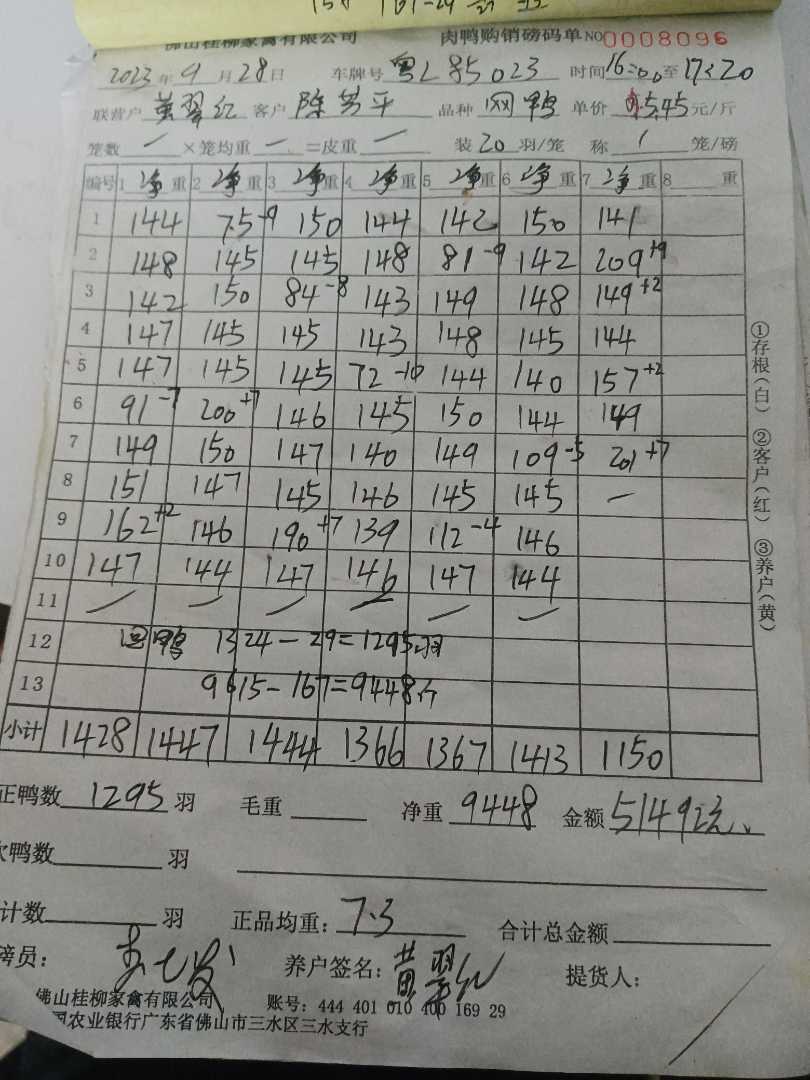 佛山桂柳家禽有限公司 肉鸭购销磅码单 NO 0008096
2023年9月28日 车牌号 粤L85023 时间16:00至17:20
联营户 黄翠红 客户 陈苏平 品种 网鸭 单价 5.45元/斤
笼数 — ×笼均重 — =皮重 — 装20羽/笼 称 1 笼/磅
编号 1 净重 2 净重 3 净重 4 净重 5 净重 6 净重 7 净重 8 重
1 144 75-9 150 144 142 150 141
2 148 145 145 148 81-9 142 209+9
3 142 150 84-8 143 149 148 149+2
4 147 145 145 143 148 145 144
5 147 145 145 72-10 144 140 157+2
6 91-7 200+7 146 145 150 144 149
7 149 150 147 140 149 109-5 201+7
8 151 147 145 146 145 145 —
9 162+2 146 190+7 139 112-4 146
10 147 144 147 146 147 144
11 — — — — — —
12 回鸭 1324-29=1295羽
13 9615-167=9448斤
小计 1428 1447 1444 1366 1367 1413 1150
正鸭数 1295 羽 毛重 净重 9448 金额 51492元
次鸭数 羽
计数 羽 正品均重: 7.3 合计总金额
磅员: 养户签名: 黄翠红 提货人:
佛山桂柳家禽有限公司 账号: 444 401 010 400 169 29
国农业银行广东省佛山市三水区三水支行
①存根(白) ②客户(红) ③养户(黄)